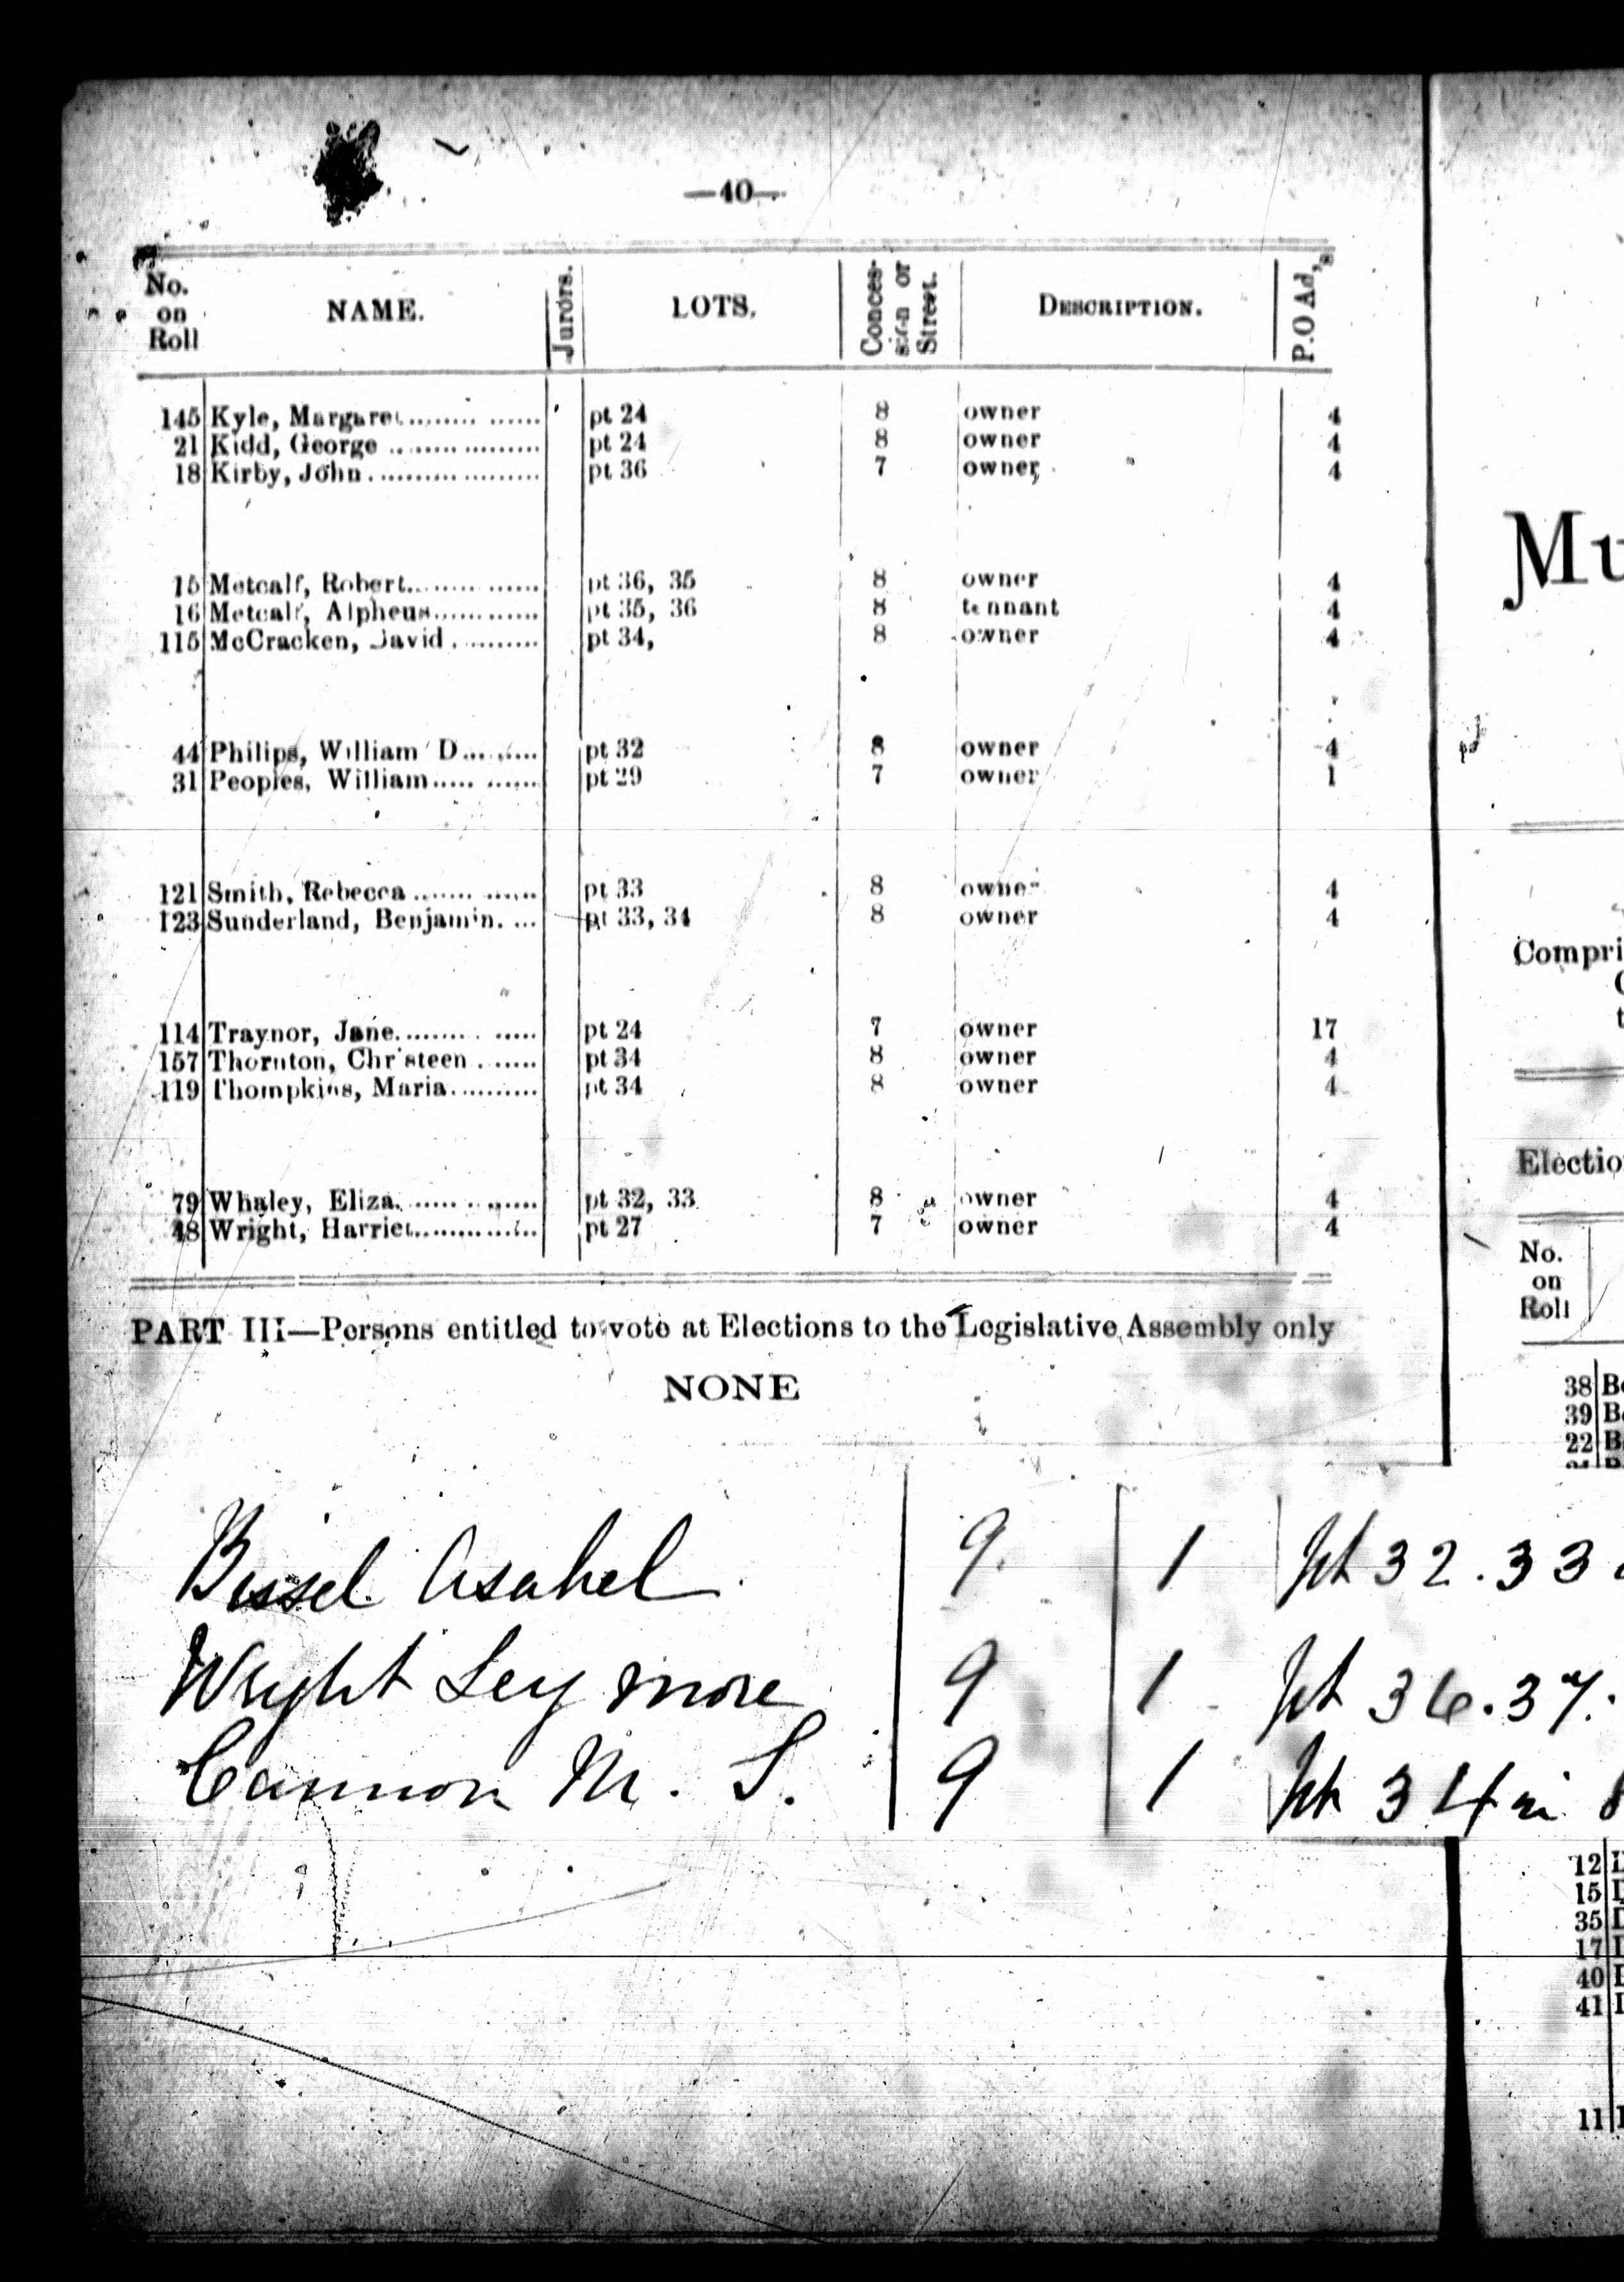 —40—
No. on Roll NAME. Jurors. LOTS. Conces- sion or Street. DESCRIPTION. P.O Ad,s
145 Kyle, Margaret ............... pt 24 8 owner 4
21 Kidd, George ................. pt 24 8 owner 4
18 Kirby, John ................... pt 36 7 owner, 4
15 Metcalf, Robert ............... pt 36, 35 8 owner 4
16 Metcalf, Alpheus ............. pt 35, 36 8 tennant 4
115 McCracken, David .......... pt 34, 8 owner 4
44 Philips, William D ......... pt 32 8 owner 4
31 Peoples, William ............ pt 29 7 owner 1
121 Smith, Rebecca .............. pt 33 8 owner 4
123 Sunderland, Benjamin. ... pt 33, 34 8 owner 4
114 Traynor, Jane ............... pt 24 7 owner 17
157 Thornton, Christeen ....... pt 34 8 owner 4
119 Thompkins, Maria .......... pt 34 8 owner 4
79 Whaley, Eliza ............... pt 32, 33 8 owner 4
48 Wright, Harriet .............. pt 27 7 owner 4
PART III—Persons entitled to vote at Elections to the Legislative Assembly only
NONE
Bissel Asahel 9 1 Pt 32.33
Wright Seymore 9 1 Pt 36.37.
Cannon M. S. 9 1 Pt 34 in
Mu
Compri
Electio
No.
on
Roll
38 B
39 B
22 B
12
15
35
17
40
41
11